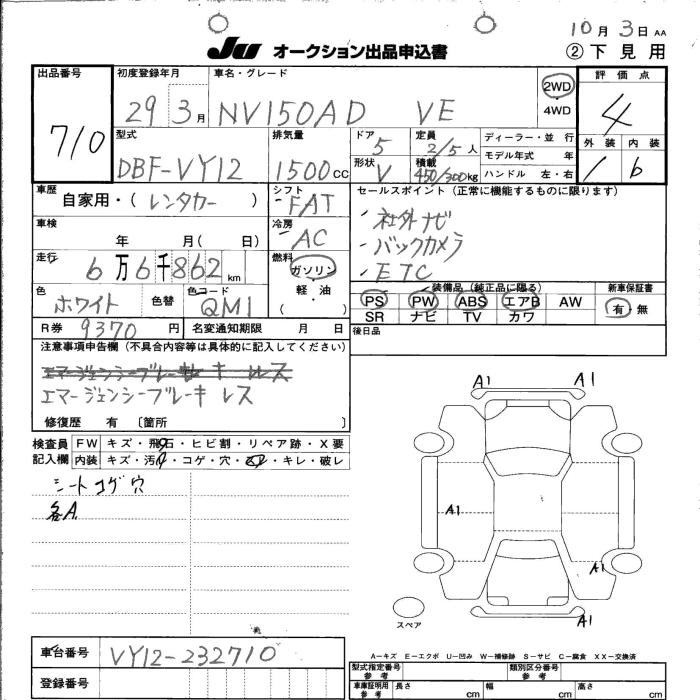 10月3日 AA
JU オークション出品申込書
②下見用
出品番号
710
初度登録年月
29 3月
車名・グレード
NV150AD VE
2WD
・4WD
評価点
4
外装 内装
1 b
型式
DBF-VY12
排気量
1500cc
ドア
5
定員
2/5人
形状
V
積載
450/300kg
ディーラー・並行
モデル年式 年
ハンドル 左・右
車歴
自家用・(レンタカー)
シフト
FAT
車検
年 月(日)
冷房
AC
走行
6万6千862km
燃料
ガソリン
軽・油
( )
色
ホワイト
色替
色コード
QM1
R券 9370円
名変通知期限 月 日
セールスポイント(正常に機能するものに限ります)
・社外ナビ
・バックカメラ
・ETC
装備品(純正品に限る)
PS PW ABS エアB AW
SR ナビ TV カワ
新車保証書
有・無
後日品
注意事項申告欄(不具合内容等は具体的に記入してください)
エマージェンシーブレーキレス
修復歴 有 〔箇所 〕
検査員
記入欄
FW キズ・飛石・ヒビ割・リペア跡・X要
内装 キズ・汚れ・コゲ・穴・・キレ・破レ
シートコゲ穴
各A
A1 A1
A1
A1
A1
スペア
車台番号 VY12-232710
登録番号
A-キズ E-エクボ U-凹み W-補修跡 S-サビ C-腐食 XX-交換済
型式指定番号
参考
類別区分番号
参考
車庫証明用
参考
長さ cm
幅 cm
高さ cm